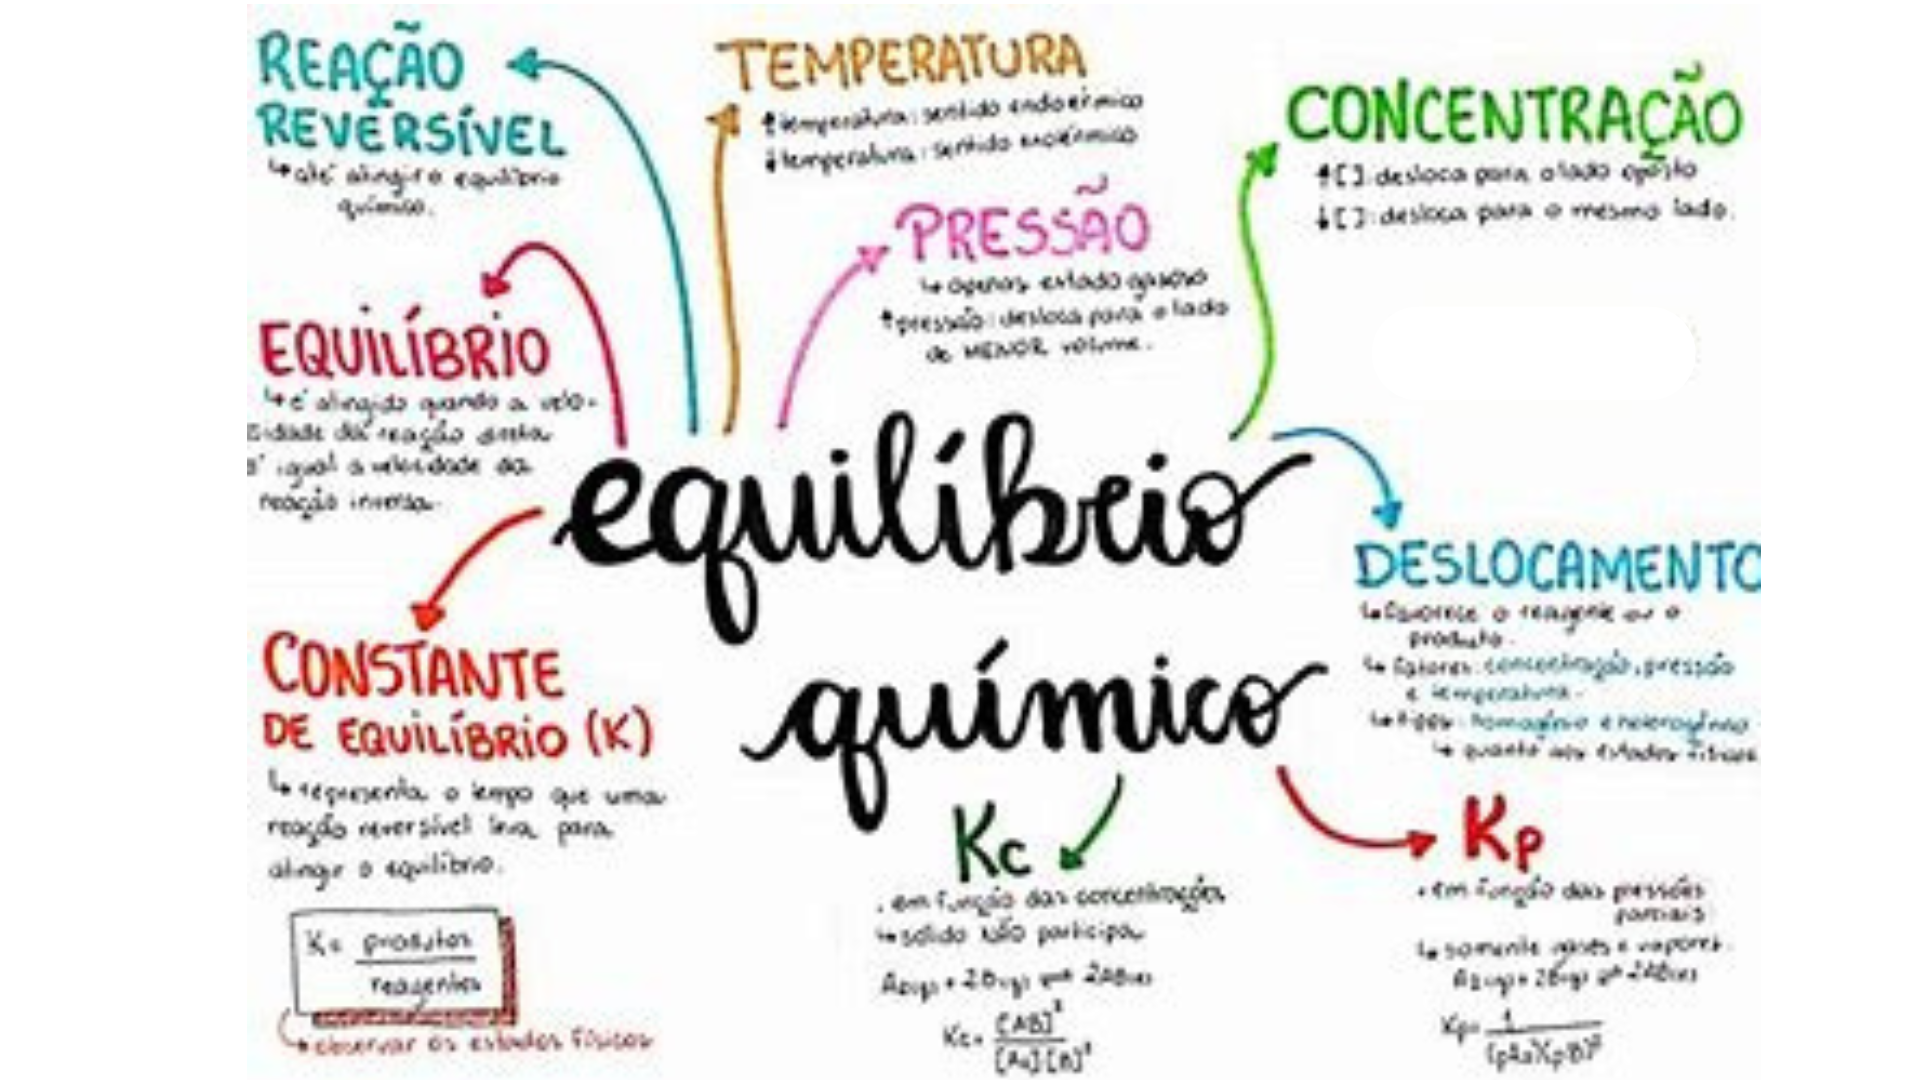 REAÇÃO
REVERSÍVEL
↳ até atingir o equilíbrio
químico.
TEMPERATURA
↑ temperatura: sentido endotérmico
↓ temperatura: sentido exotérmico
PRESSÃO
↳ apenas estado gasoso
↑ pressão: desloca para o lado
de MENOR volume.
CONCENTRAÇÃO
↑[ ]: desloca para o lado oposto
↓[ ]: desloca para o mesmo lado.
EQUILÍBRIO
↳ é atingido quando a velo-
cidade da reação direta
é igual a velocidade da
reação inversa.
equilíbrio
químico
DESLOCAMENTO
↳ favorece o reagente ou o
produto.
↳ fatores: concentração, pressão
e temperatura.
↳ tipos: homogênio e heterogênio
↳ quanto aos estados físicos
CONSTANTE
DE EQUILÍBRIO (K)
↳ representa o tempo que uma
reação reversível leva para
atingir o equilíbrio.
K = produtos
reagentes
↳ observar os estados físicos
Kc
. em função das concentrações
↳ sólido não participa
Kc = [AB]²
[A₂].[B]²
Kp
. em função das pressões
parciais
↳ somente gases e vapores.
Kp = 1
(pA₂)(pB)²